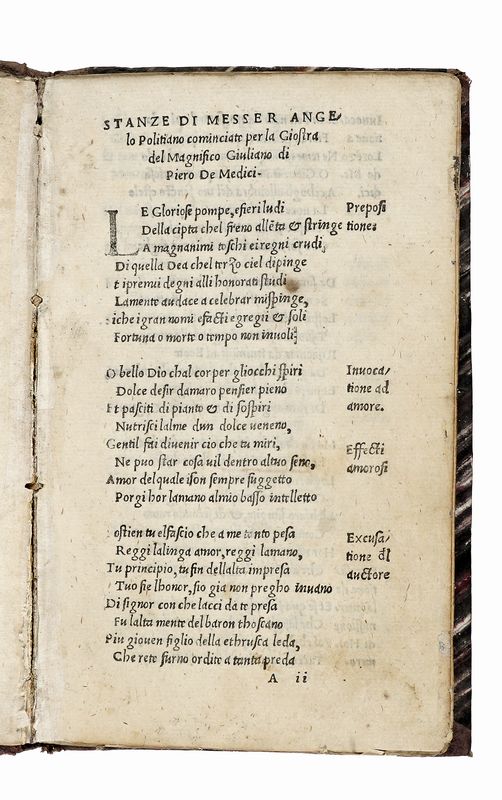 STANZE DI MESSER ANGE/
lo Politiano cominciate per la Giostra
del Magnifico Giuliano di
Piero De Medici-
LE Gloriose pompe, e fieri ludi
Della cipta chel freno allēta & stringe
A magnanimi toschi ei regni crudi,
Di quella Dea chel terzo ciel dipinge
t i premi degni alli honorati studi
La mente audace a celebrar mi spinge,
iche i gran nomi e facti egregii & soli
Fortuna o morte o tempo non inuoli
Preposi
tione
O bello Dio chal cor per gliocchi spiri
Dolce desir damaro pensier pieno
Et pasciti di pianto & di sospiri
Nutrisci lalme dun dolce ueneno,
Gentil fai diuenir cio che tu miri,
Ne puo star cosa uil dentro al tuo seno,
Amor del quale ison sempre suggetto
Porgi hor la mano al mio basso intelletto
Inuoca/
tione ad
amore.
Effecti
amorosi
ostien tu el fascio che a me tanto pesa
Reggi la linga amor, reggi la mano,
Tu principio, tu fin dellalta impresa
Tuo sie lhonor, sio gia non pregho inuano
Di signor con che lacci da te presa
Fu lalta mente del baron thoscano
Piu giouen figlio della ethrusca leda,
Che rete furno ordite a tanta preda
Excusa/
tione dl
auctore
A ii